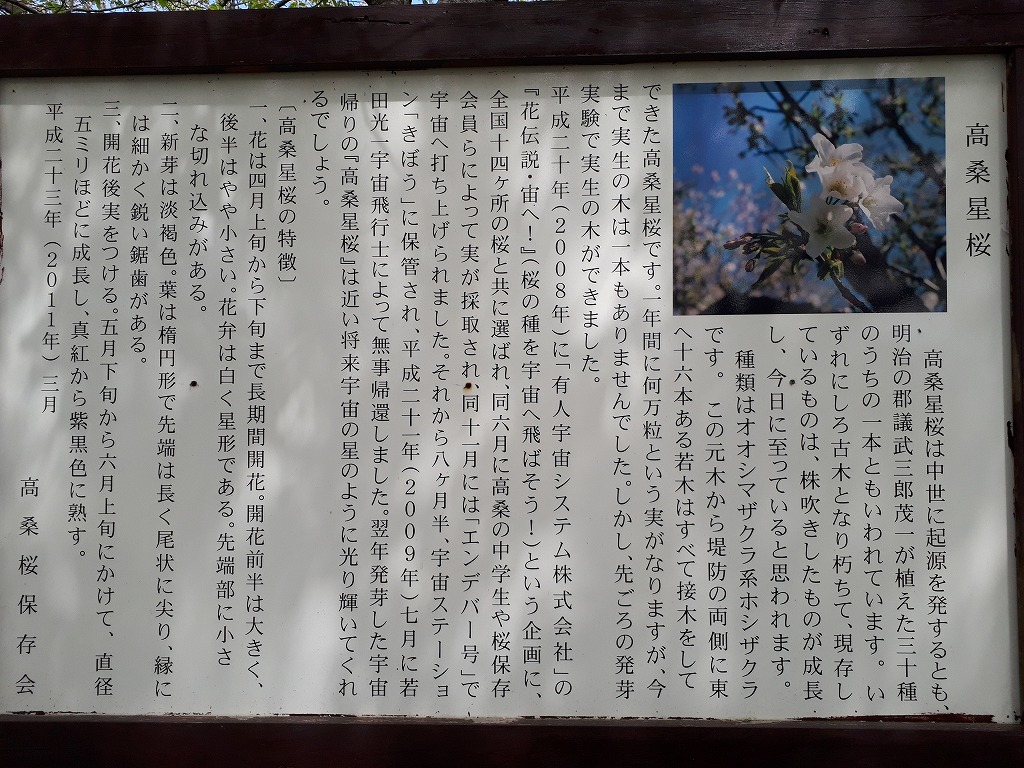 高桑星桜
高桑星桜は中世に起源を発するとも、
明治の郡議武三郎茂一が植えた三十種
のうちの一本ともいわれています。い
ずれにしろ古木となり朽ちて、現存し
ているものは、株吹きしたものが成長
し、今日に至っていると思われます。
種類はオオシマザクラ系ホシザクラ
です。この元木から堤防の両側に東
へ十六本ある若木はすべて接木をして
できた高桑星桜です。一年間に何万粒という実がなりますが、今
まで実生の木は一本もありませんでした。しかし、先ごろの発芽
実験で実生の木ができました。
平成二十年(2008年)に「有人宇宙システム株式会社」の
『花伝説・宙へ!』(桜の種を宇宙へ飛ばそう!)という企画に、
全国十四ヶ所の桜と共に選ばれ、同六月に高桑の中学生や桜保存
会員らによって実が採取され、同十一月には「エンデバー号」で
宇宙へ打ち上げられました。それから八ヶ月半、宇宙ステーショ
ン「きぼう」に保管され、平成二十一年(2009年)七月に若
田光一宇宙飛行士によって無事帰還しました。翌年発芽した宇宙
帰りの『高桑星桜』は近い将来宇宙の星のように光り輝いてくれ
るでしょう。
〔高桑星桜の特徴〕
一、花は四月上旬から下旬まで長期間開花。開花前半は大きく、
後半はやや小さい。花弁は白く星形である。先端部に小さ
な切れ込みがある。
二、新芽は淡褐色。葉は楕円形で先端は長く尾状に尖り、縁に
は細かく鋭い鋸歯がある。
三、開花後実をつける。五月下旬から六月上旬にかけて、直径
五ミリほどに成長し、真紅から紫黒色に熟す。
平成二十三年(2011年)三月
高桑桜保存会